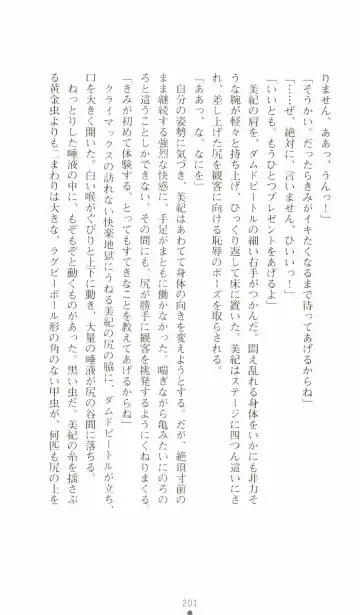 りません、ああっ、うんっ！」
「そうかい。だったらきみがイキたくなるまで待ってあげるからね」
「……ぜ、絶対に、言いません、ひいいっ！」
「いいとも。もうひとつプレゼントをあげるよ」
　美紀の肩を、ダムドビートルの細い右手がつかんだ。悶え乱れる身体をいかにも非力そ
うな腕が軽々と持ち上げ、ひっくり返して床に置いた。美紀はステージに四つん這いにさ
れ、差し上げた尻を観客に向ける恥辱のポーズを取らされる。
「ああっ、な、なにを」
　自分の姿勢に気づき、美紀はあわてて身体の向きを変えようとする。だが、絶頂寸前の
まま継続する強烈な快感に、手足がまともに働かない。喘ぎながら亀みたいにのろの
ろと這うことしかできない。その間にも、尻が勝手に観客を挑発するようにくねりまくる。
「きみが初めて体験する、とってもすてきなことを教えてあげるからね」
　クライマックスの訪れない快楽地獄にうねる美紀の尻の脇に、ダムドビートルが立ち、
口を大きく開いた。白い喉がぐびりと上下に動き、大量の唾液が尻の谷間に落ちる。
　ねっとりした唾液の中に、もぞもぞと動くものがあった。黒い虫だ。美紀の糸を揺さぶ
る黄金虫よりも二まわりは大きな、ラグビーボール形の角のない甲虫が、何匹も尻の上を
201